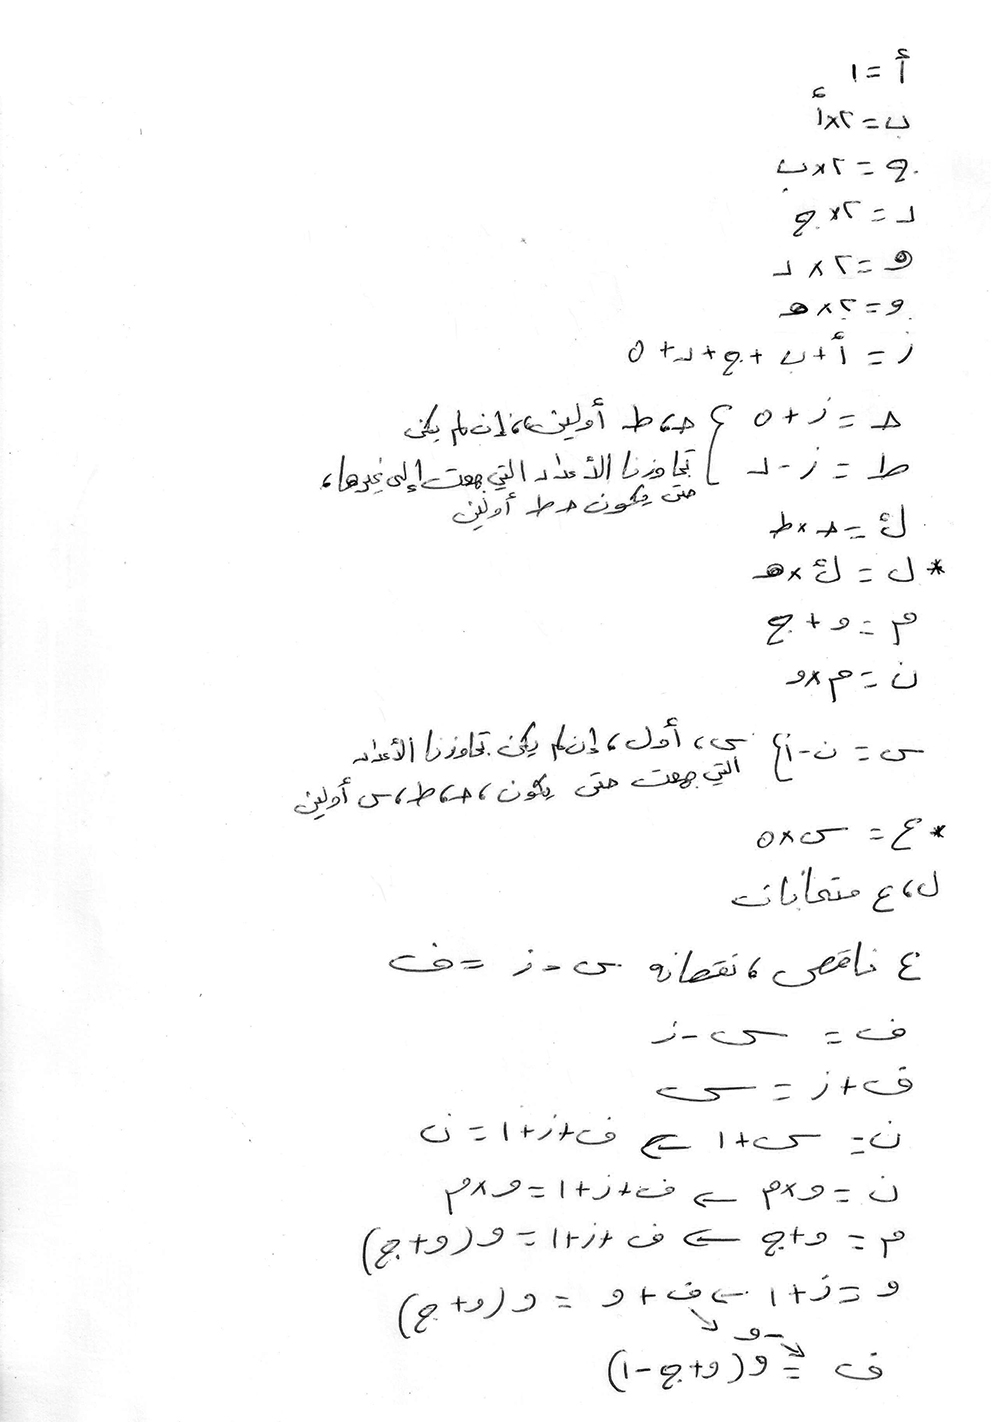 أ = ١
ب = ٢×أ
ج = ٢×ب
د = ٢×ج
ه = ٢×د
و = ٢×ه
ز = أ+ب+ج+د+ه
ح = ز+ه } ح، ط أولين، فإن لم يكن
ط = ز-د } تجاوزنا الأعداد التي جمعت إلى غيرها،
حتى يكون ح ط أولين
ك = ح×ط
* ل = ك×ه
م = و+ج
ن = م×و
س = ن-أ } س، أول، إن لم يكن تجاوزنا الأعداد
التي جمعت حتى يكون، ح، ط، س أولين
* ع = س×ه
ل، ع متحابان
ع ناقص، نقصانه س-ز = ف
ف = س-ز
ف+ز = س
ن = س+1 ← ف+ز+1 = ن
ن = و×م ← ف+ز+1 = و×م
م = و+ج ← ف+ز+1 = و(و+ج)
و = ز+1 ← ف+و = و(و+ج)
-و
ف = و(و+ج-1)